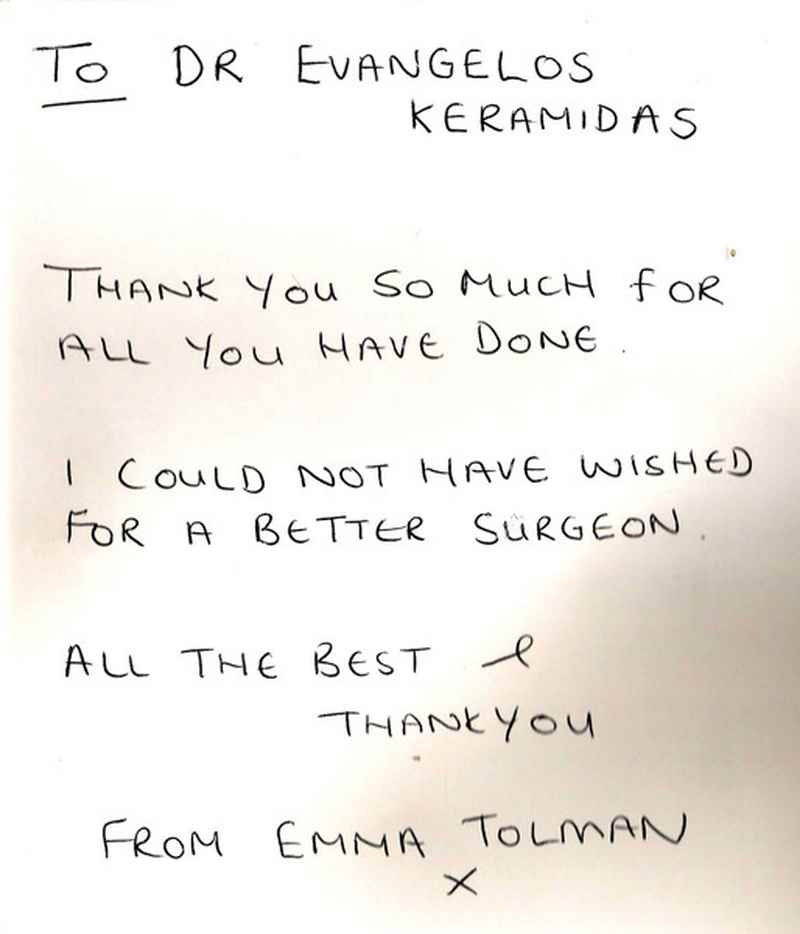 To DR EVANGELOS
KERAMIDAS
THANK YOU SO MUCH FOR
ALL YOU HAVE DONE.
I COULD NOT HAVE WISHED
FOR A BETTER SURGEON.
ALL THE BEST &
THANKYOU
FROM EMMA TOLMAN
X